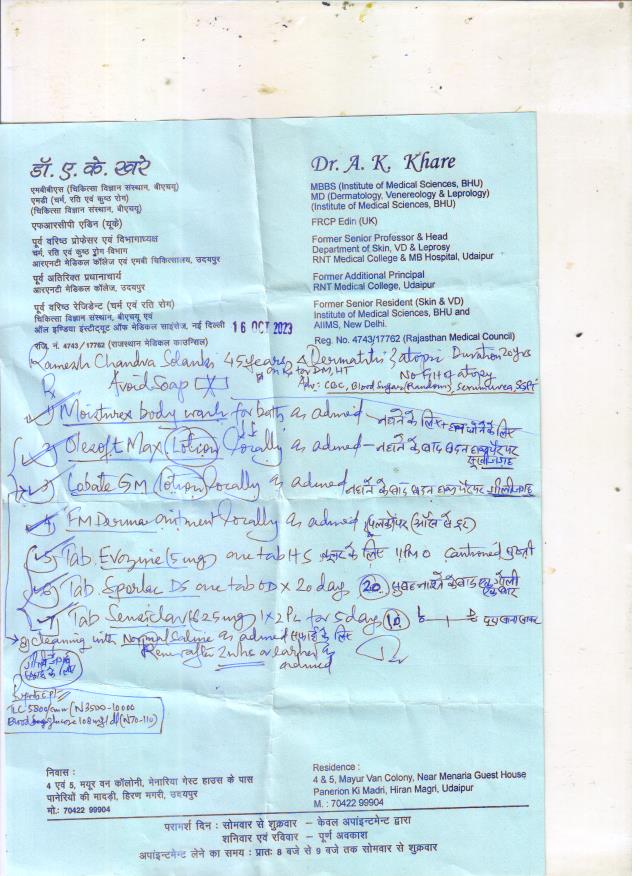 डॉ. ए. के. खरे
एमबीबीएस (चिकित्सा विज्ञान संस्थान, बीएचयू)
एमडी (चर्म, रति एवं कुष्ठ रोग)
(चिकित्सा विज्ञान संस्थान, बीएचयू)
एफआरसीपी एडिन (यूके)
पूर्व वरिष्ठ प्रोफेसर एवं विभागाध्यक्ष
चर्म, रति एवं कुष्ठ रोग विभाग
आरएनटी मेडिकल कॉलेज एवं एमबी चिकित्सालय, उदयपुर
पूर्व अतिरिक्त प्रधानाचार्य
आरएनटी मेडिकल कॉलेज, उदयपुर
पूर्व वरिष्ठ रेजिडेन्ट (चर्म एवं रति रोग)
चिकित्सा विज्ञान संस्थान, बीएचयू एवं
ऑल इण्डिया इंस्टीट्यूट ऑफ मेडिकल साइंसेज, नई दिल्ली
रजि. नं. 4743 / 17762 (राजस्थान मेडिकल काउन्सिल)
Dr. A. K. Khare
MBBS (Institute of Medical Sciences, BHU)
MD (Dermatology, Venereology & Leprology)
(Institute of Medical Sciences, BHU)
FRCP Edin (UK)
Former Senior Professor & Head
Department of Skin, VD & Leprosy
RNT Medical College & MB Hospital, Udaipur
Former Additional Principal
RNT Medical College, Udaipur
Former Senior Resident (Skin & VD)
Institute of Medical Sciences, BHU and
AIIMS, New Delhi.
Reg. No. 4743/17762 (Rajasthan Medical Council)
16 OCT 2023
Ramesh Chandra Solanki 45 years Dermatitis atopic Duration 20yrs
on Rx for DM, HT No F/H of atopy
Rx Avoid Soap [X] Adv: CBC, Blood Sugar (Random), Serum Urea, SGPT
1 Moisturex body wash for bath as advised नहाने के लिए
2 Olesoft Max (Lotion) locally as advised - नहाने के बाद बदन हाथ पैर पर
3 Cobate GM (Lotion) locally as advised नहाने के बाद बदन हाथ पैर पर
4 FM Derma ointment locally as advised
5 Tab. Evozine (5 mg) one tab HS के लिए 11PM
6 Tab. Sporlac DS one tab OD x 20 days (20)
7 Tab (625mg) 1 x 2 for 5 days (10)
8) Cleaning with Normal Saline as advised सफाई के लिए
Review after 2 wks or earlier as advised
TLC 5800/cmm (N 3500-10000
Blood glucose 108mg/dl (N70-110)
निवास :
4 एवं 5, मयूर वन कॉलोनी, मेनारिया गेस्ट हाउस के पास
पानेरियों की मादड़ी, हिरण मगरी, उदयपुर
मो.: 70422 99904
Residence :
4 & 5, Mayur Van Colony, Near Menaria Guest House
Panerion Ki Madri, Hiran Magri, Udaipur
M. : 70422 99904
परामर्श दिन : सोमवार से शुक्रवार – केवल अपांइन्टमेन्ट द्वारा
शनिवार एवं रविवार – पूर्ण अवकाश
अपांइन्टमेन्ट लेने का समय : प्रातः 8 बजे से 9 बजे तक सोमवार से शुक्रवार